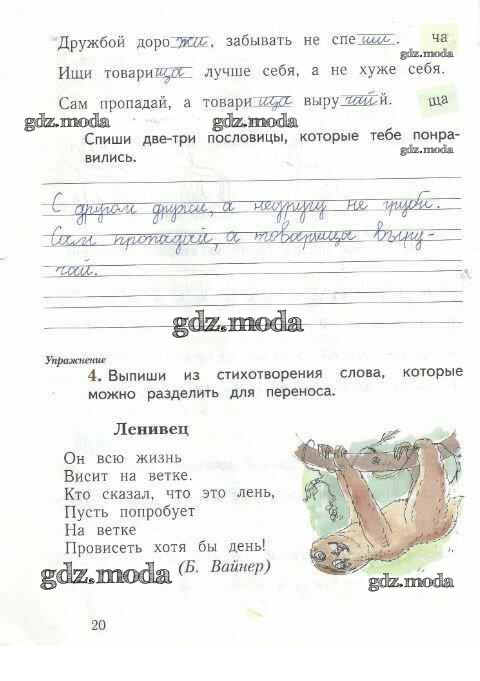 Дружбой дорожи, забывать не спеши. ча
gdz.moda
Ищи товарища лучше себя, а не хуже себя.
Сам пропадай, а товарища выручай й. ща
gdz.moda gdz.moda gdz.moda
Спиши две-три пословицы, которые тебе понра-
вились.
С другом дружи, а недругу не груби.
Сам пропадай, а товарища выру-
чай.
gdz.moda
Упражнение
4. Выпиши из стихотворения слова, которые
можно разделить для переноса.
Ленивец
Он всю жизнь
Висит на ветке.
Кто сказал, что это лень,
Пусть попробует
На ветке
Провисеть хотя бы день!
(Б. Вайнер)
gdz.moda gdz.moda
20